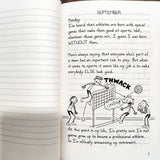 SEPTEMBER
Monday
I've heard that athletes are born with special
genes that make them good at sports. Well,
whatever those genes are, I guess I was born
WITHOUT them.
Mom's always saying that everyone who's part of
a team has an important role to play. But when
it comes to sports it seems my job is to make
everybody ELSE look good.
THWACK
At this point in my life, I'm pretty sure I'm not
gonna grow up to become a professional athlete.
So I'm officially announcing my retirement.
1